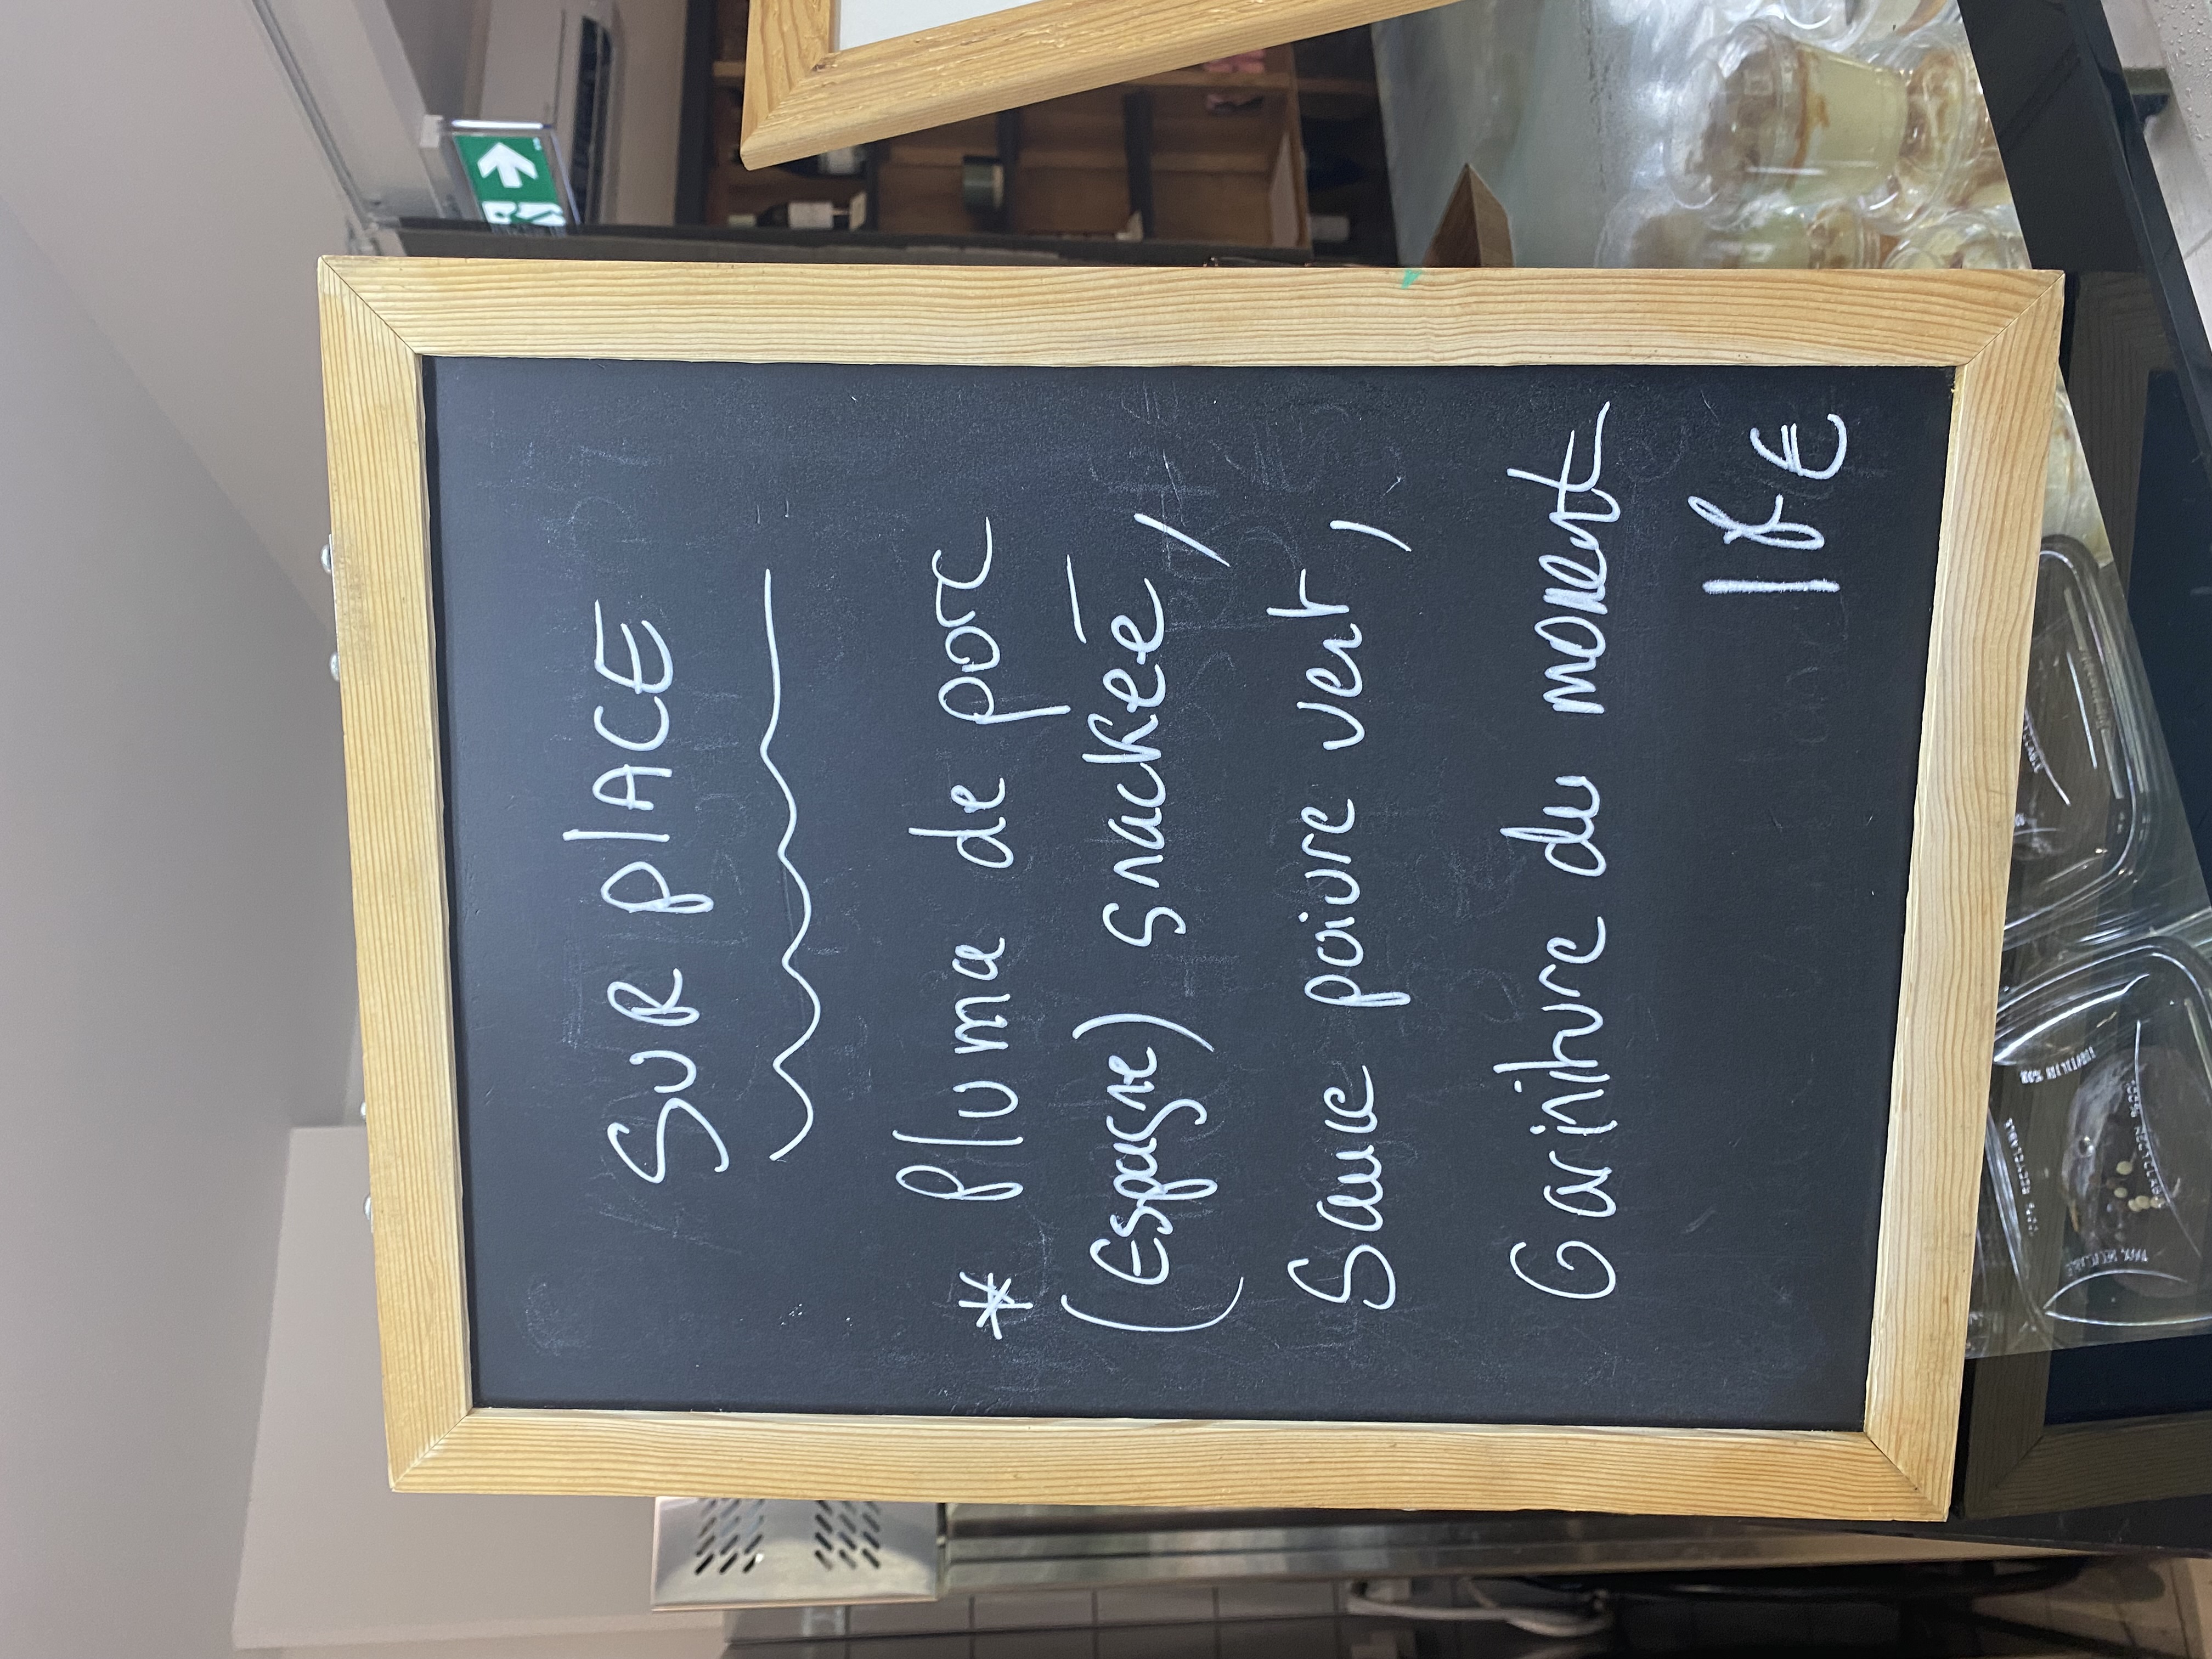 SUR PLACE
* Pluma de porc
(Espagne) snackée,
Sauce poivre vert,
Garniture du moment
18€
100% RECYCLABLE